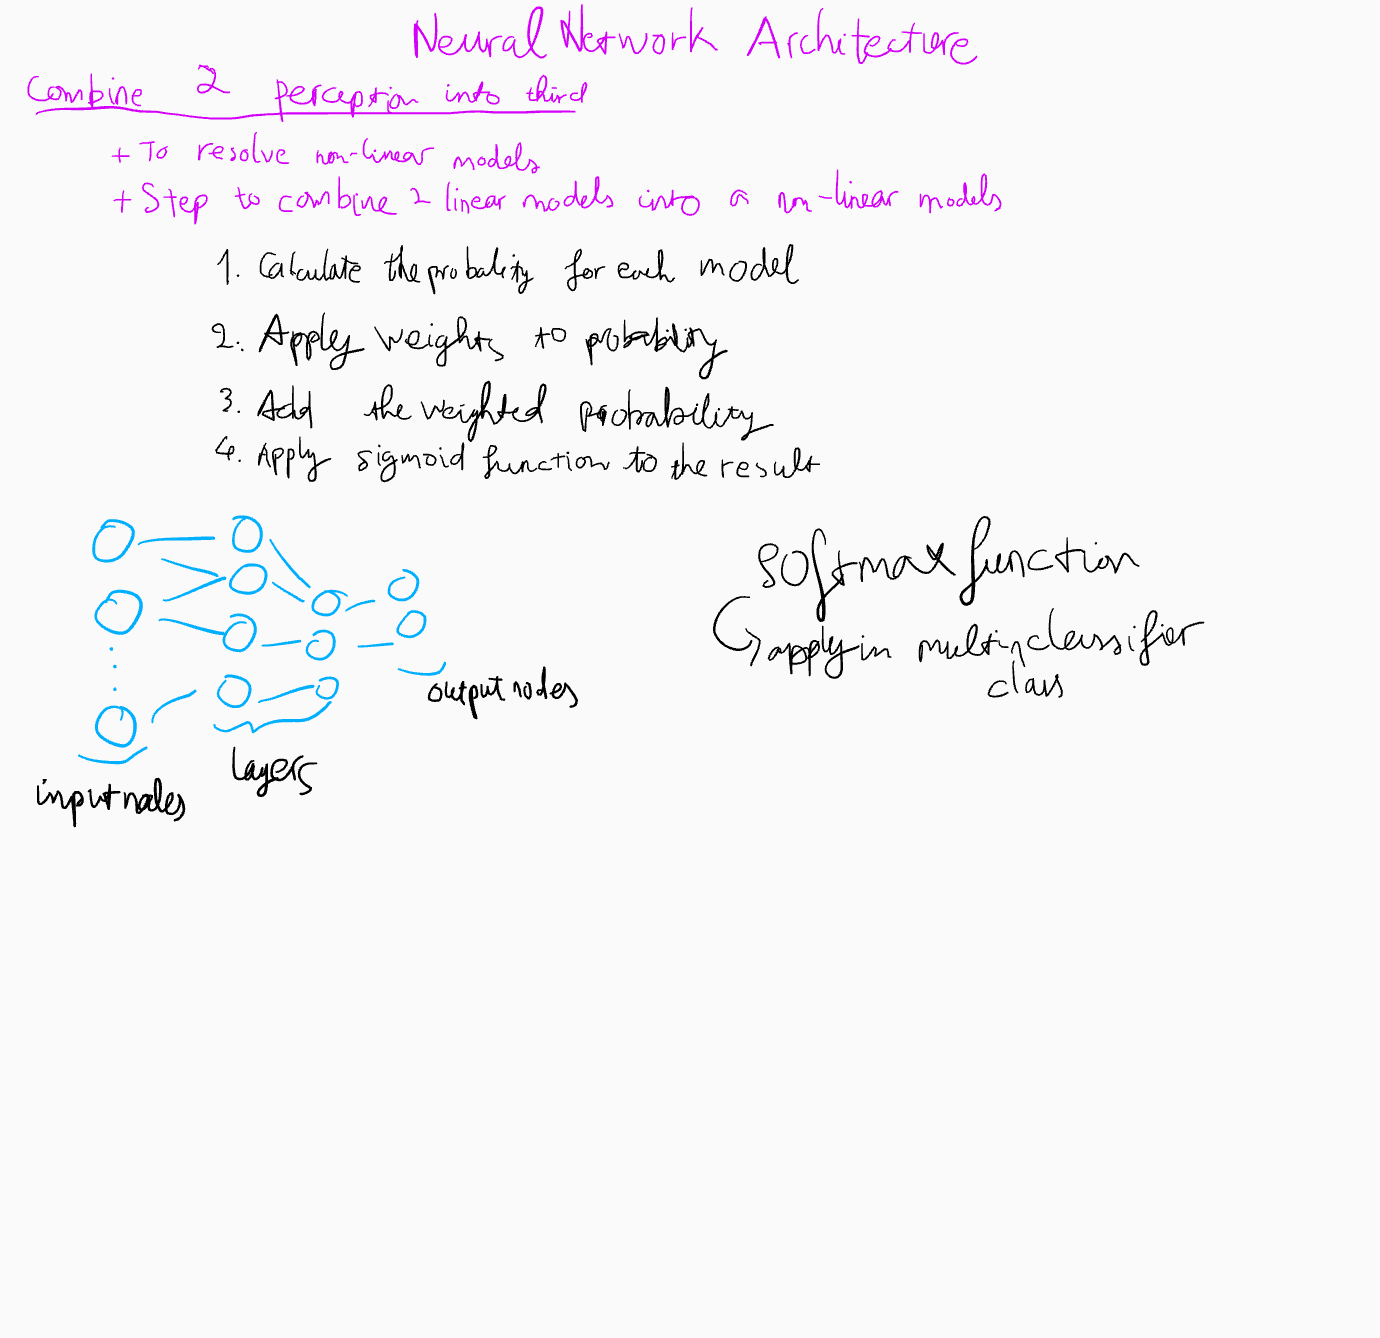 Neural Network Architecture
Combine 2 perception into third
+ To resolve non-linear models
+ Step to combine 2 linear models into a non-linear models
1. Calculate the probality for each model
2. Apply weights to probability
3. Add the weighted probability
4. Apply sigmoid function to the result
softmax function
apply in multi classifier
class
output nodes
layers
input nodes